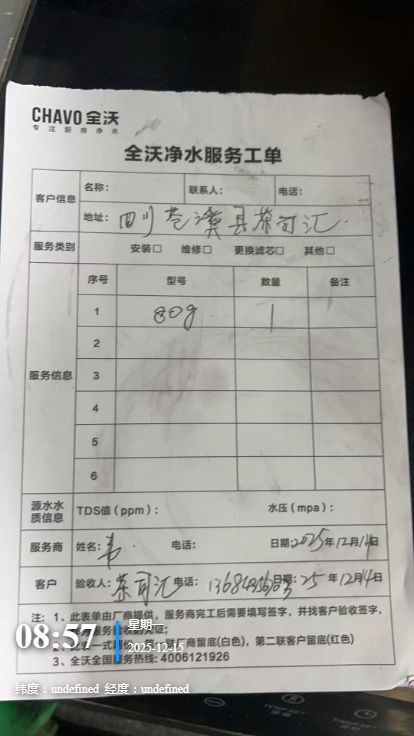 CHAVO 全沃
专注厨房净水
全沃净水服务工单
客户信息 名称： 联系人： 电话：
地址：四川苍溪县茶可汇
服务类别 安装□ 维修□ 更换滤芯□ 其他□
服务信息 序号 型号 数量 备注
1 80g 1
2
3
4
5
6
源水水质信息 TDS值（ppm）： 水压（mpa）：
服务商 姓名： 电话： 日期：2025年12月14日
客户 验收人：茶可汇 电话： 日期：25年12月14日
注：1、此表单由厂商提供，服务商完工后需要填写签字，并找客户验收签字，
服务验收的凭证；
一式两份，第一联厂商留底(白色)，第二联客户留底(红色)
3、全沃全国服务热线：4006121926
08:57
星期一
2025-12-15
纬度：undefined 经度：undefined